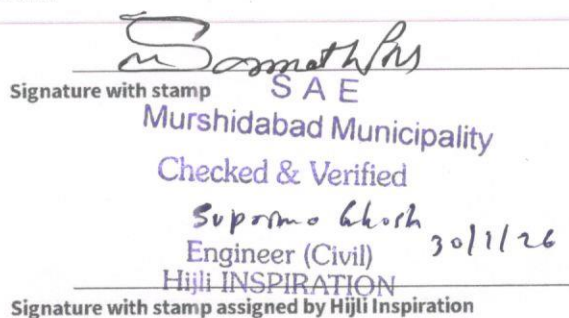 Somnath Das
Signature with stamp
S A E
Murshidabad Municipality
Checked & Verified
Suparno Ghosh
30/1/26
Engineer (Civil)
Hijli INSPIRATION
Signature with stamp assigned by Hijli Inspiration